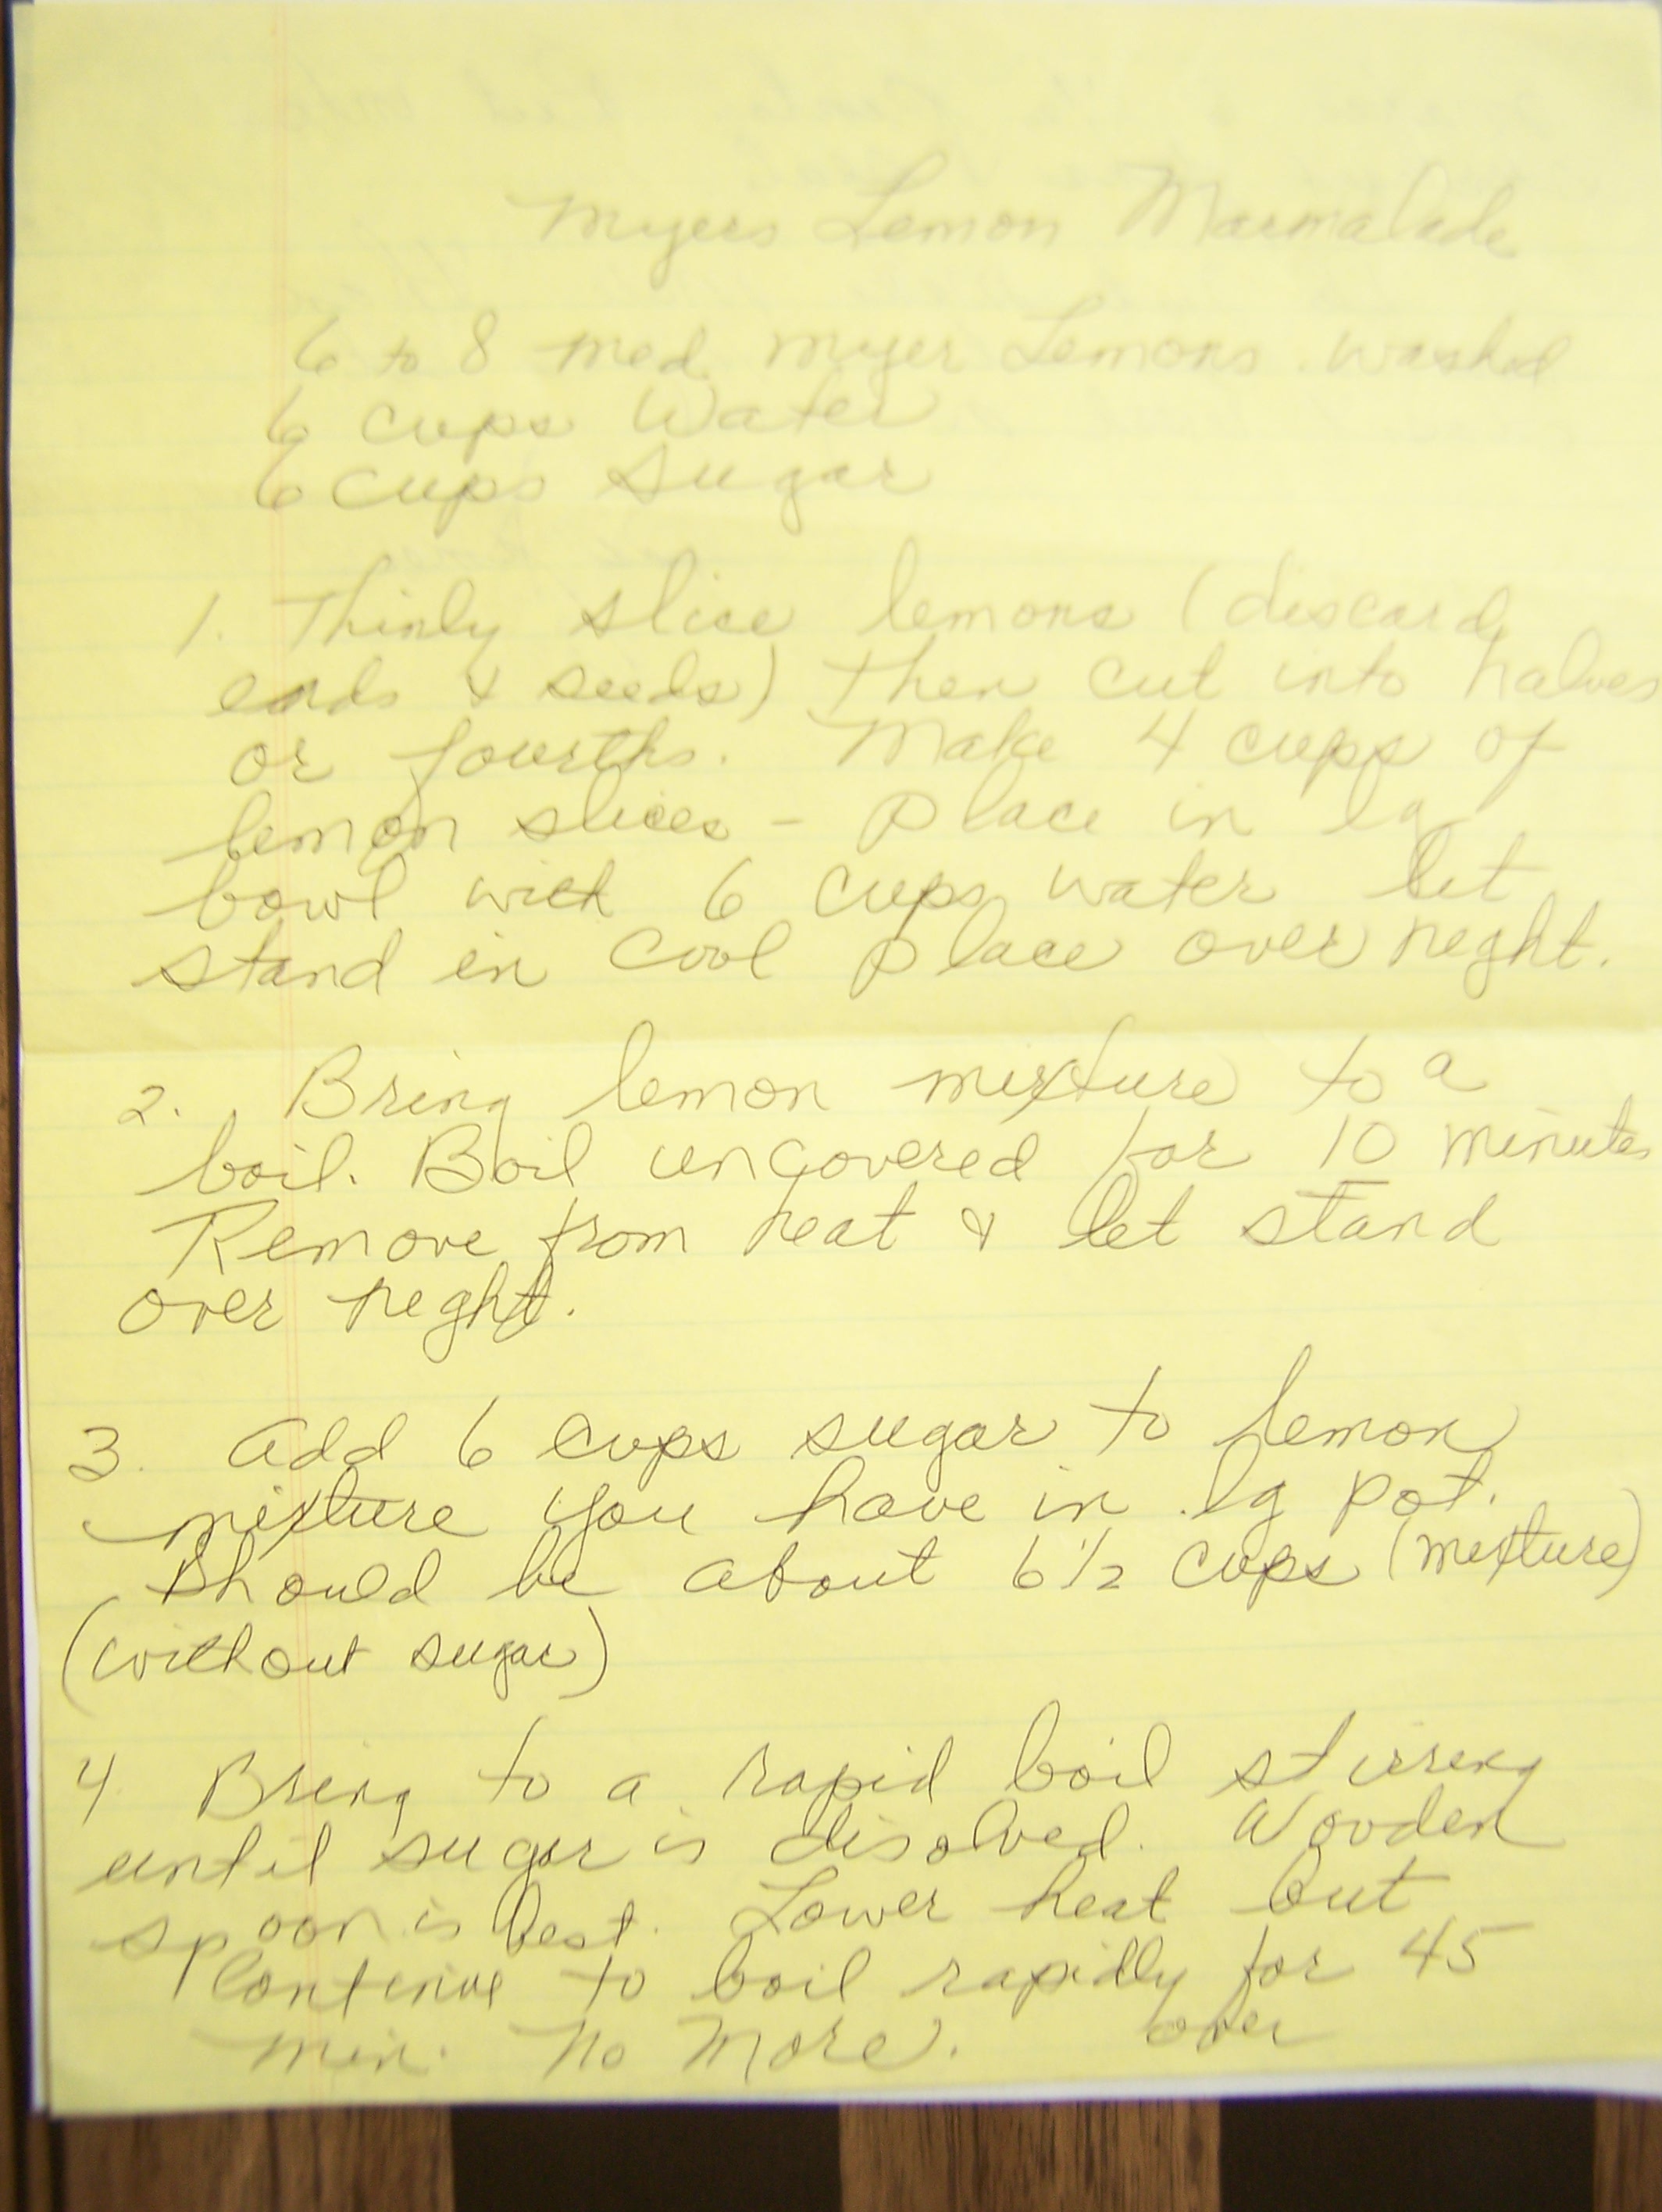 Myers Lemon Marmalade
6 to 8 med myer Lemons washed
6 cups Water
6 cups sugar
1. Thinly slice lemons (discard
ends & seeds) then cut into halves
or fourths. Make 4 cups of
lemon slices - place in lg
bowl with 6 cups water let
stand in cool place over night.
2. Bring lemon mixture to a
boil. Boil uncovered for 10 minutes
Remove from heat & let stand
over night.
3. Add 6 cups sugar to lemon
mixture you have in lg pot.
Should be about 6 1/2 cups (mixture)
(without sugar)
4. Bring to a rapid boil stirring
until sugar is disolved. Wooden
spoon is best. Lower heat but
continue to boil rapidly for 45
min. No More. over